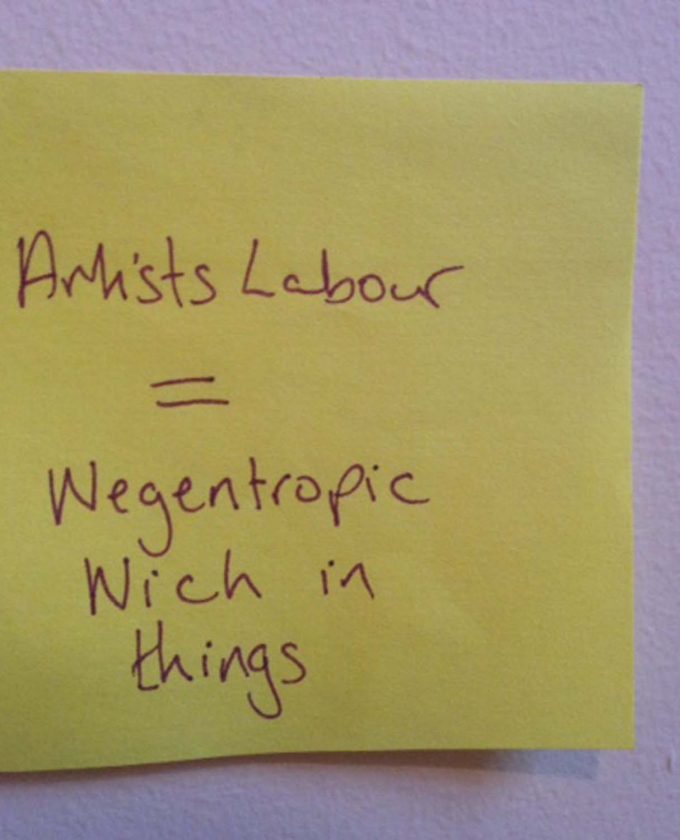 Artists Labour
=
Negentropic
Nich in
things